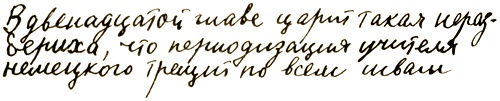 В двенадцатой главе царит такая нераз-
бериха, что периодизация учителя
немецкого трещит по всем швам